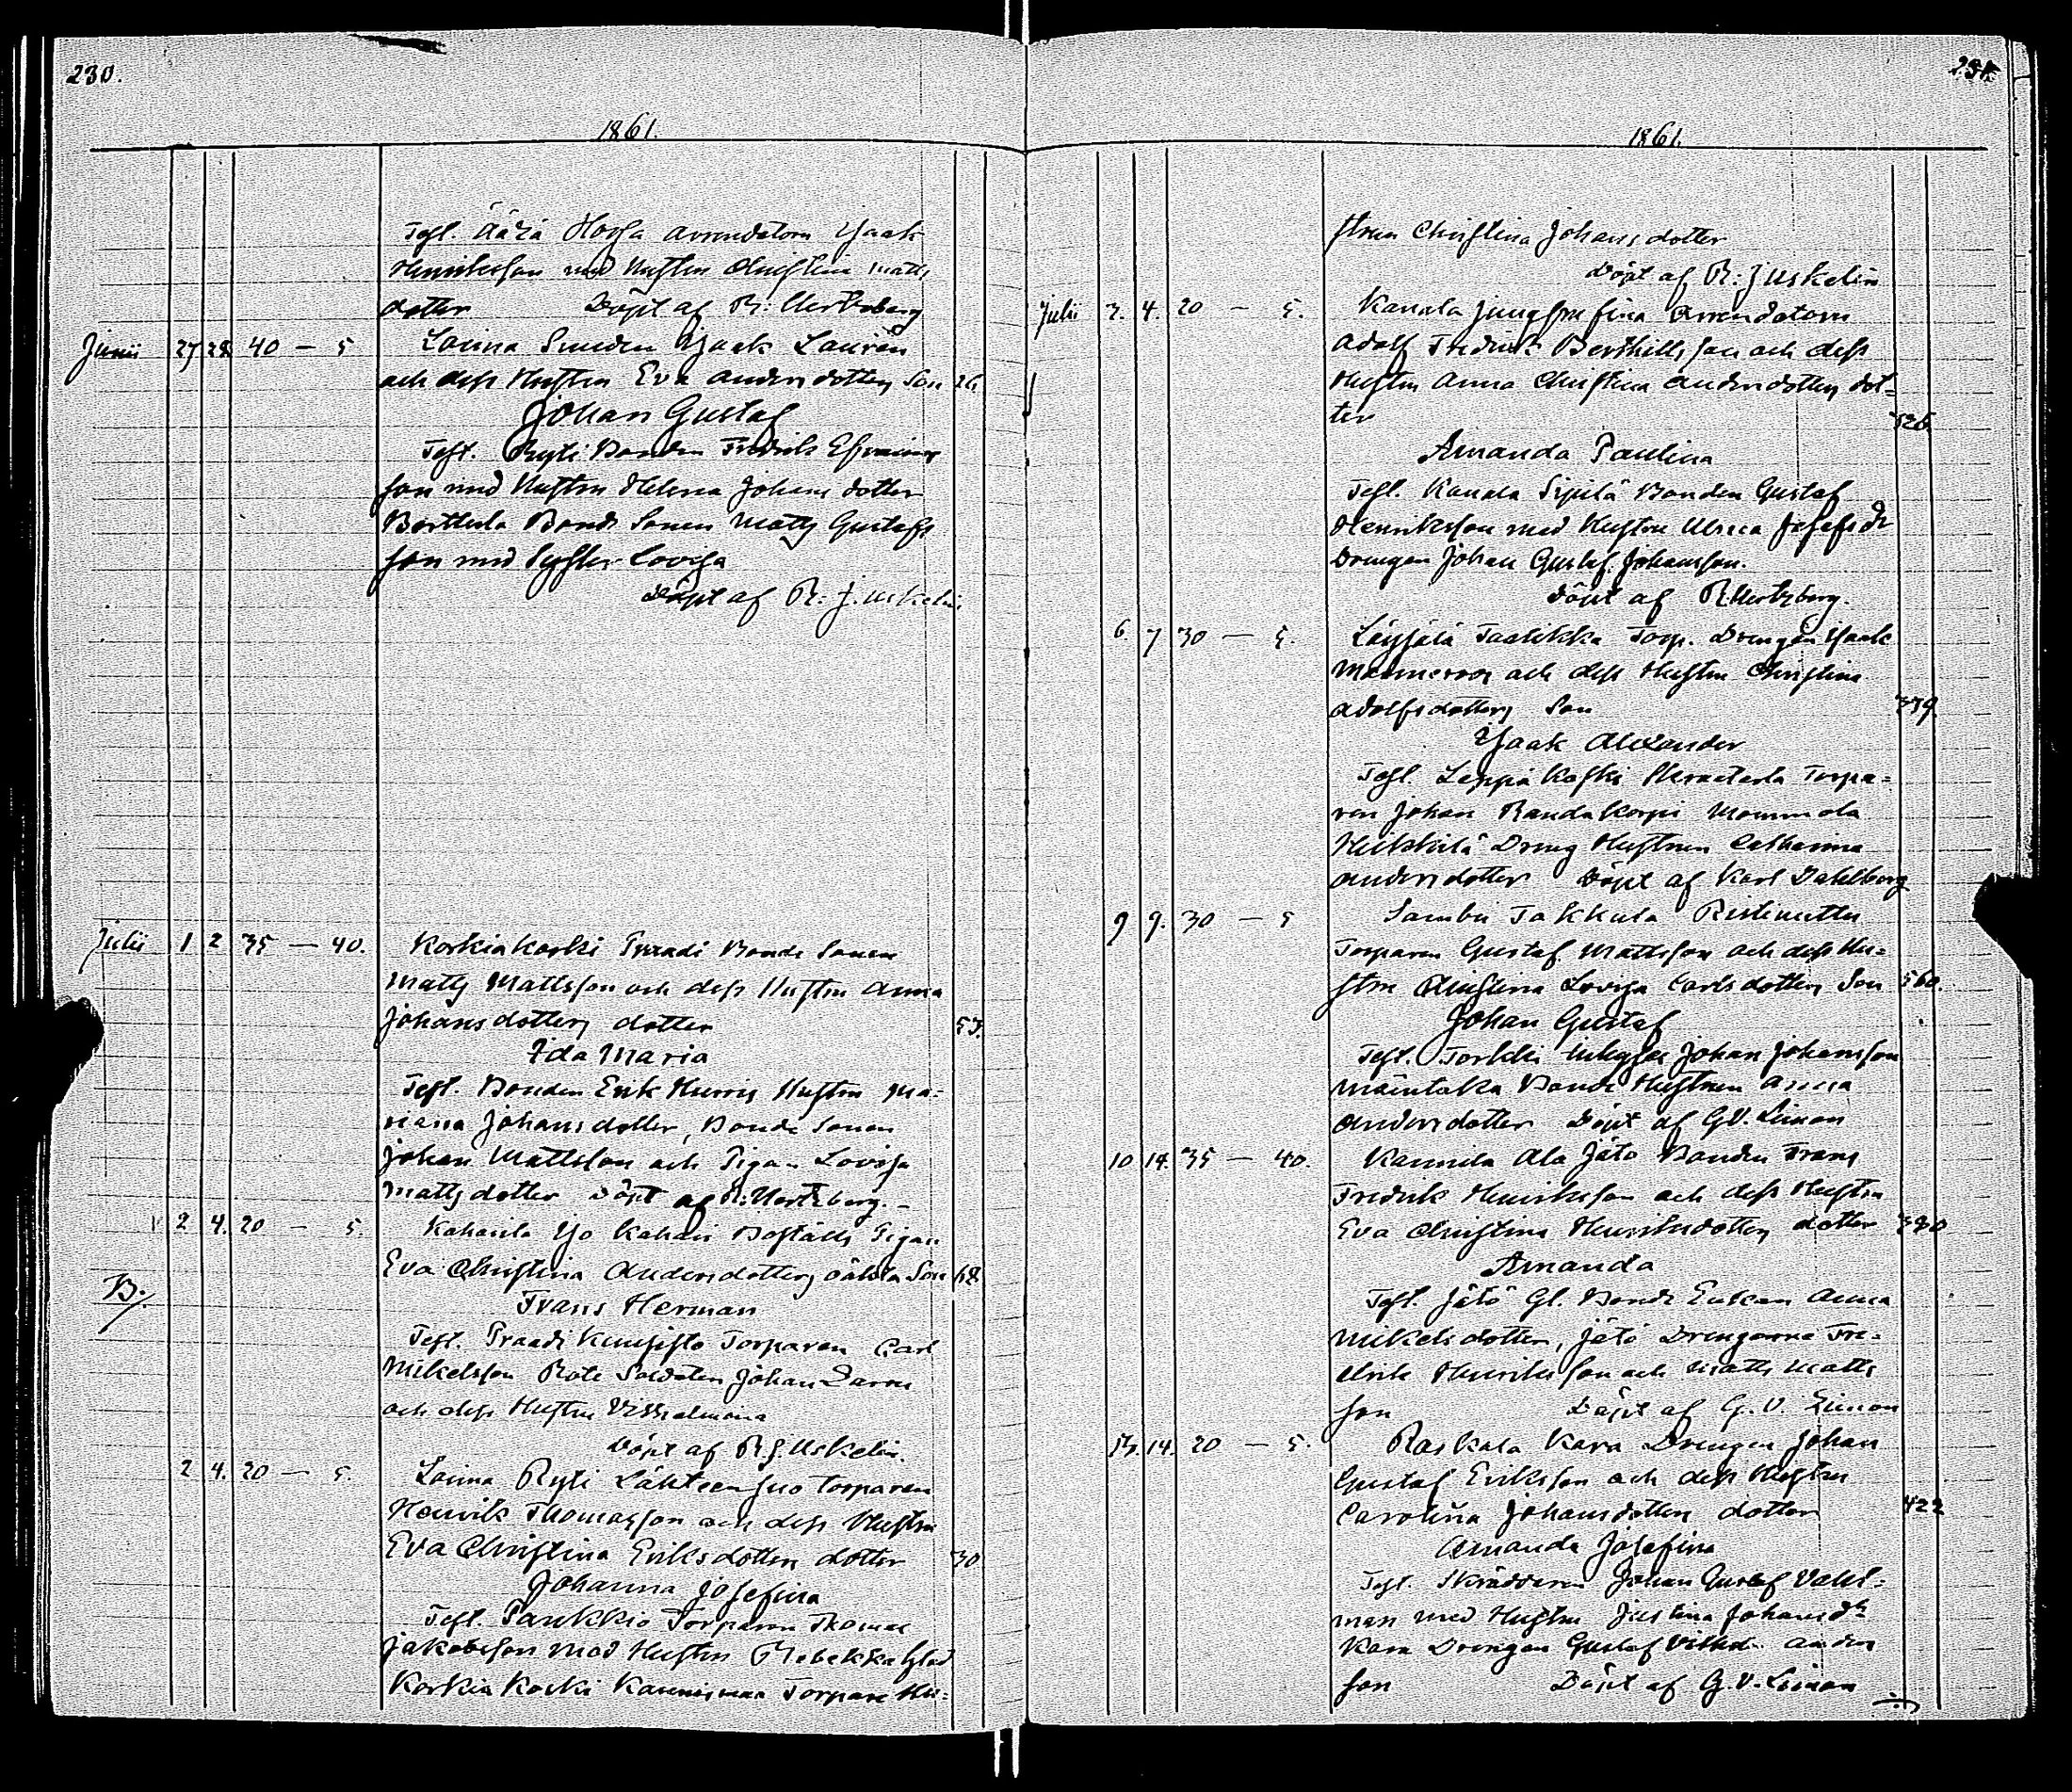 230.
1861.
Test. Äärä Hovja arrendatorn Isaak
Henriksson med Hustru Christina Matts
dotter Döpt af R: Hertzberg
Junii 27 28. 40 — 5 Loima Smeden Isaak Laurén
och dess Hustru Eva Andersdotters Son 26.
Johan Gustaf
Test. Ryti Bonden Fredrik Efraims
son med Hustru Helena Johans dotter
Berttula Bonde Sonen Matts Gustafs
son med Syster Lovisa
Döpt af R: J. Uskelin
Julii 1 2 35 — 40. Korkiakoski Praadi Bonde Sonen
Matts Mattsson och dess Hustru Anna
Johansdotters dotter 53.
Ida Maria
Test. Bonden Erik Hurris Hustru Ma-
riana Johansdotter, Bonde Sonen
Johan Mattsson och Pigan Lovisa
Mattsdotter Döpt af R: Hertzberg. –
2 4. 20 — 5. Kahaila Yso Kahari Boställs Pigan
Eva Christina Andersdotters oäkta Son 68
B./
Frans Herman
Test. Praadi Kuusisto Torparen Carl
Mikelsson Rote Soldaten Johan
och dess Hustru Vilhelmina
Döpt af R. J. Uskelin.
2 4. 20 — 5. Loima Ryti Lähteensuo Torparen
Henrik Thomasson och dess Hustru
Eva Christina Eriksdotters dotter 30
Johanna Josefina
Test. Paukkio Torparen Thomas
Jakobsson med Hustru Rebekka Glad
Korkia Koski Kaunismaa Torpare Hu-
231.
1861.
strun Christina Johansdotter
Döpt af R: J Uskelin
Julii 3. 4. 20 — 5. Kanala Jungfru fina Arrendatorn
Adolf Fredrik Berthills son och dess
Hustru Anna Christina Andersdotters dot-
ter 526.
Amanda Paulina
Test. Kanala Sipilä Bonden Gustaf
Henriksson med Hustru Ulrica Josefsdr
Drengen Johan Gustaf Johansson.
Döpt af R. Hertzberg.
6. 7 30 — 5. Löysjälä Torp. Drengen Isaak
Mannerros och dess Hustru Christina
Adolfsdotters Son 339.
Isaak Alexander
Test. Leppäkoski Torpa-
ren Johan Randakorpi Mommola
Heikkilä Dreng Hustrun Catharina
Andersdotter Döpt af Karl Dahlberg
9 9. 30 — 5 Sambu Takkula
Torparen Gustaf Mattsson och dess Hu-
stru Christina Lovisa Carlsdotters Son 560.
Johan Gustaf
Test. Torkkli Inhyses Johan Johansson
Mäentaka Bonde Hustrun Anna
Andersdotter Döpt af G.V. Limon
10 14. 35 — 40. Kannila Ala Jäto Bonden Frans
Fredrik Henriksson och dess Hustru
Eva Christina Henriksdotters dotter 390
Amanda
Test. Jätö Gl. Bonde Enkan Anna
Mikelsdotter, Jätö Drengarne Fre-
drik Henriksson och Matts Matts
son Döpt af G. V. Limon
13. 14. 20 — 5. Raskala Kara Drengen Johan
Gustaf Eriksson och dess Hustru
Carolina Johansdotters dotter 422
Amanda Josefina
Test. Skräddaren Johan Gustaf Vahl-
man med Hustru Justina Johansdr
Kara Drengen Gustaf Vilhel. Anders
son Döpt af G. V. Limon